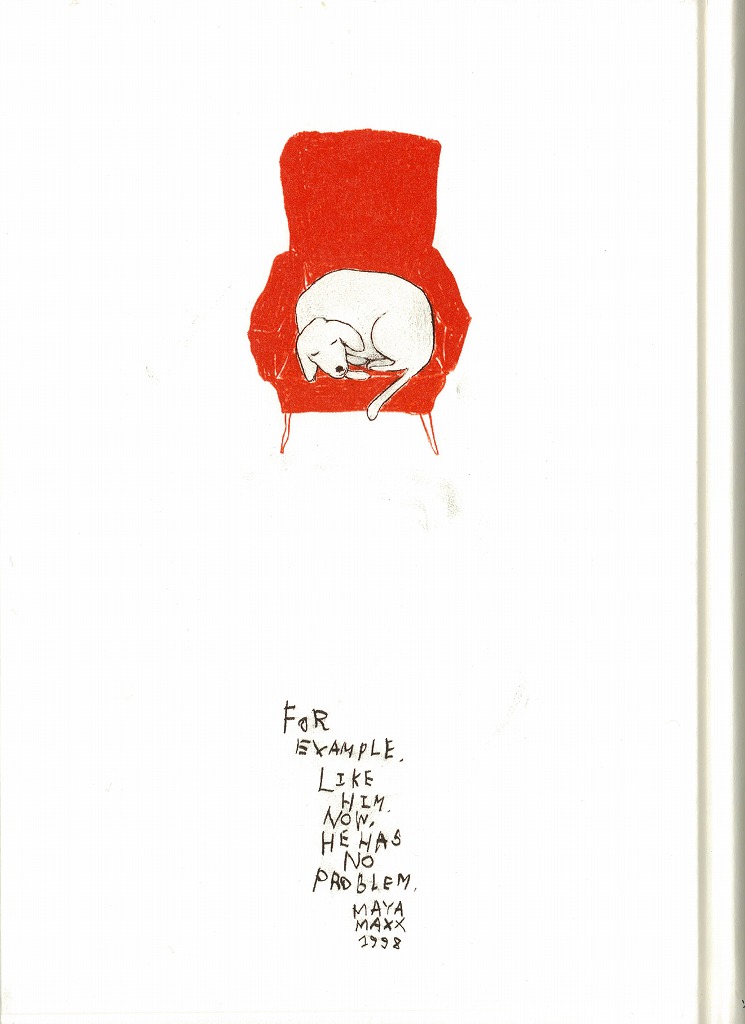 FOR
EXAMPLE.
LIKE
HIM.
NOW,
HE HAS
NO
PROBLEM.
MAYA
MAXX
1998